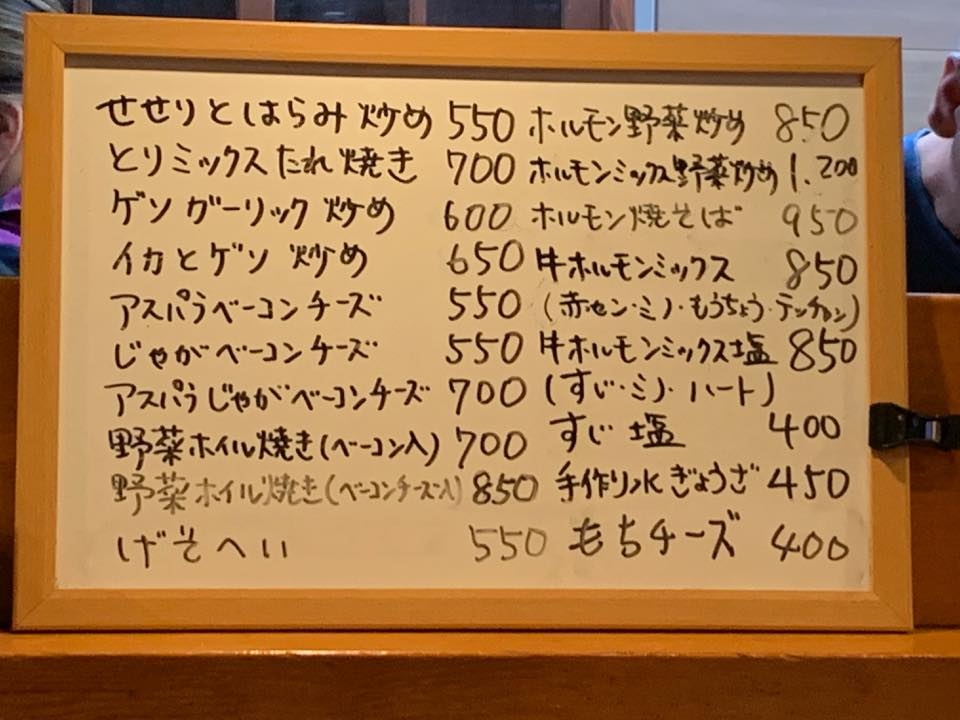 せせりとはらみ炒め 550
とりミックスたれ焼き 700
ゲソガーリック炒め 600
イカとゲソ 炒め 650
アスパラベーコンチーズ 550
じゃがベーコンチーズ 550
アスパラじゃがベーコンチーズ 700
野菜ホイル焼き(ベーコン入) 700
野菜ホイル焼き(ベーコンチーズ入) 850
げそへい 550
ホルモン野菜炒め 850
ホルモンミックス野菜炒め 1.200
ホルモン焼そば 950
牛ホルモンミックス 850
(赤セン・ミノ・もうちょう・テッチャン)
牛ホルモンミックス塩 850
(すじ・ミノ・ハート)
すじ 塩 400
手作り水ぎょうざ 450
もちチーズ 400